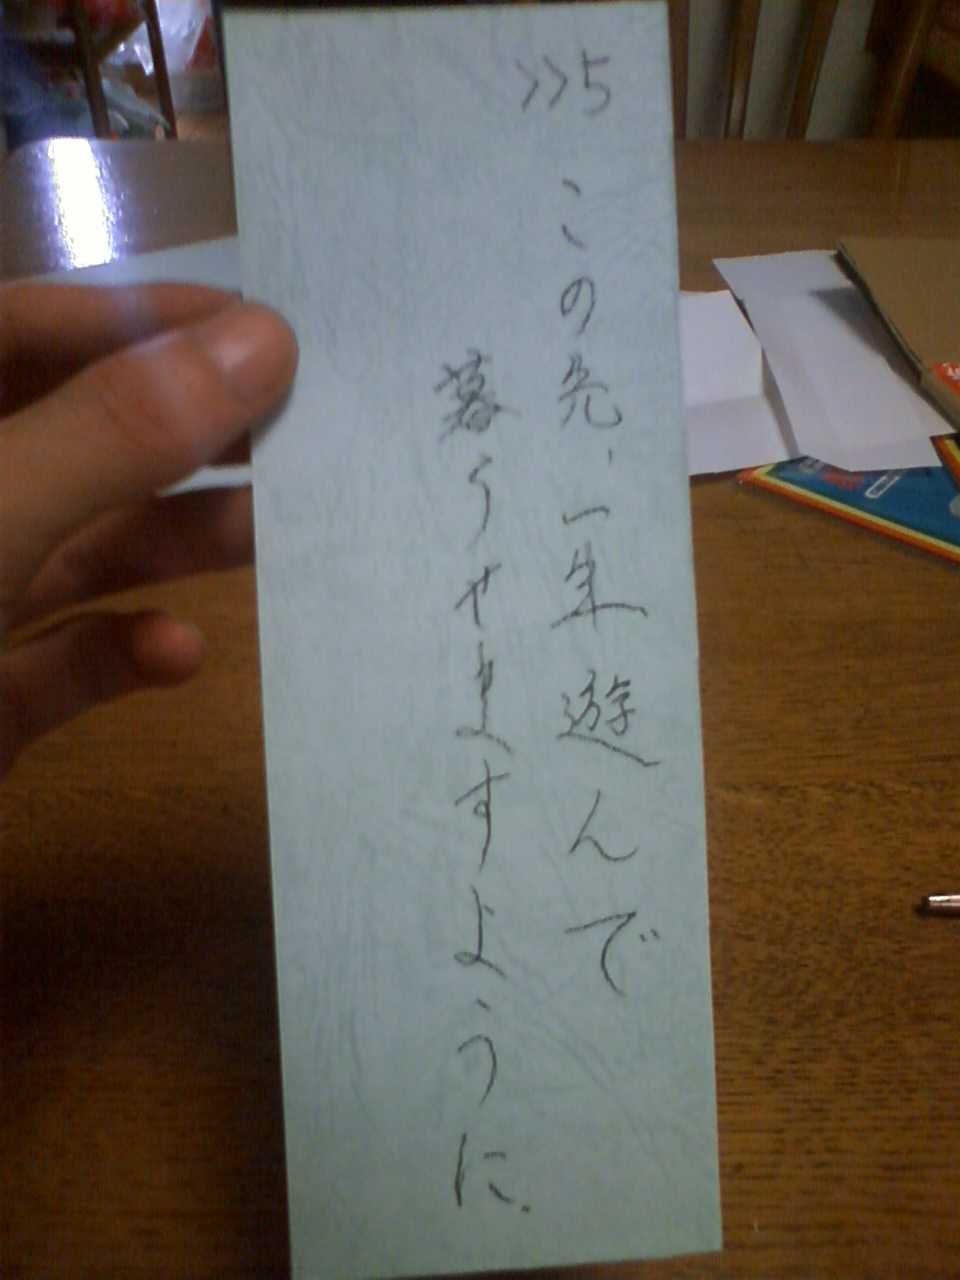 >>5
この先、一生遊んで
暮らせますように.